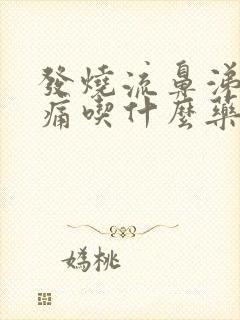 發燒流鼻涕
痛喫什麼藥
嬀桃